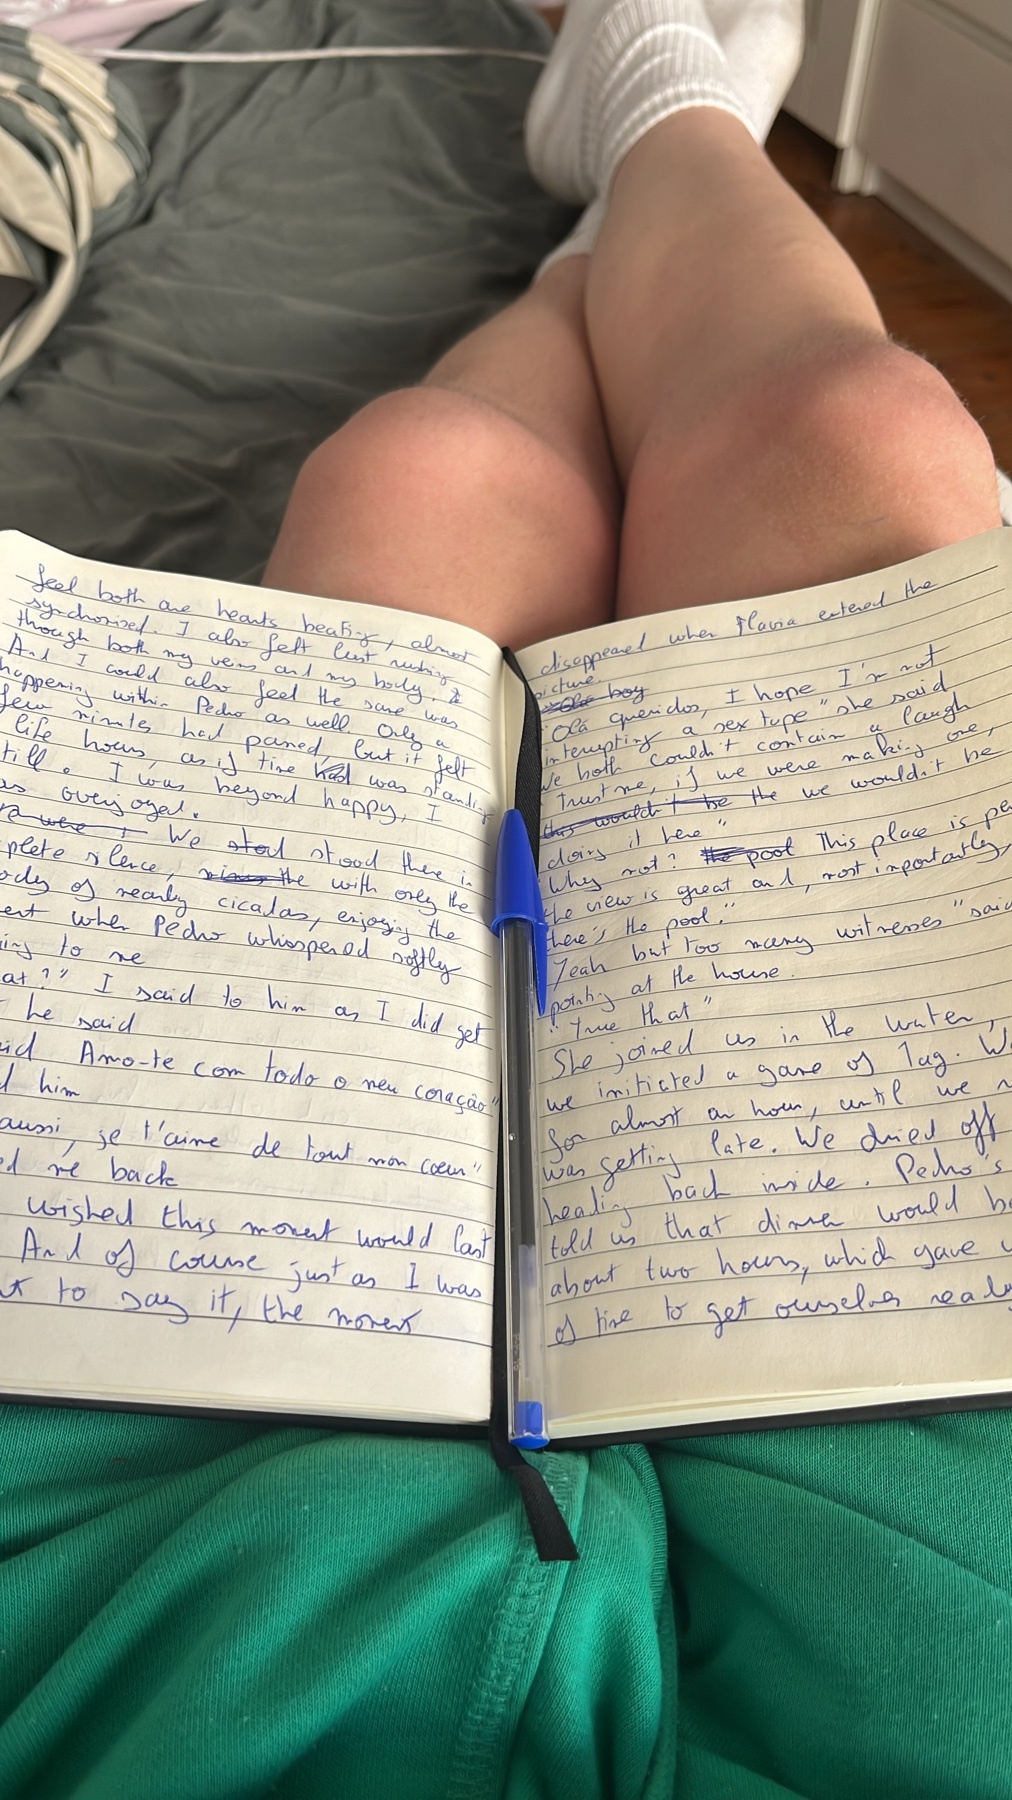 feel both are hearts beating, almost
synchonised. I also felt lust rushing
though both my veins and my body.
And I could also feel the same was
happening within Pedro as well. Only a
few minutes had passed, but it felt
life hours, as if time had was standing
till. I was beyond happy, I
as overjoyed.
We stod stood there in
plete silence, the with only the
ody of nearby cicadas, enjoying the
ent when Pedro whispered softly
ing to me
at?" I said to him as I did get
he said
id Amo-te com todo o meu coração"
d him
aussi, je t'aime de tout mon cœur"
ed me back
wished this moment would last
And of course just as I was
to say it, the moment
disappeared when Flavia entered the
picture.
boy
"Olá queridos, I hope I'm not
interupting a sex tape" she said
We both couldn't contain a laugh
"Trust me, if we were making one,
this wouldn't be the we wouldn't be
doing it here"
"Why not? the pool This place is pe
the view is great and, most importantly,
there's the pool."
"Yeah but too many witnesses" said
pointing at the house.
"True that"
She joined us in the water,
we initiated a game of Tag. W
for almost an hour, until we
was getting late. We dried off
heading back inside. Pedro's
told us that dinner would be
about two hours, which gave
of time to get ourselves ready